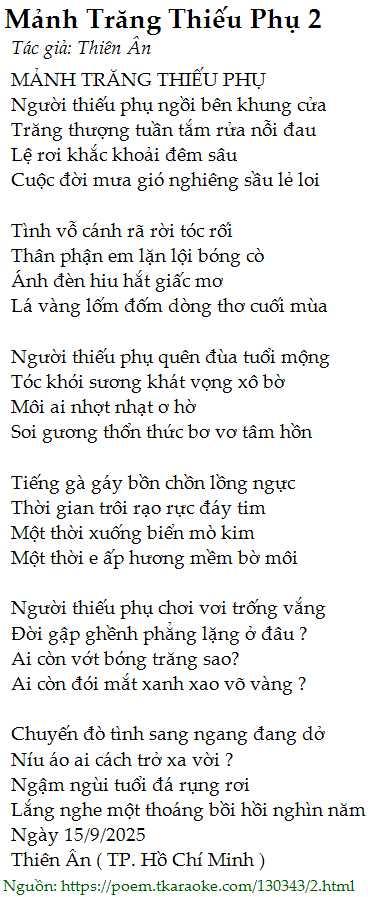 Mảnh Trăng Thiếu Phụ 2
Tác giả: Thiên Ân
MẢNH TRĂNG THIẾU PHỤ
Người thiếu phụ ngồi bên khung cửa
Trăng thượng tuần tắm rửa nỗi đau
Lệ rơi khắc khoải đêm sâu
Cuộc đời mưa gió nghiêng sầu lẻ loi

Tình vỗ cánh rã rời tóc rối
Thân phận em lặn lội bóng cò
Ánh đèn hiu hắt giấc mơ
Lá vàng lốm đốm dòng thơ cuối mùa

Người thiếu phụ quên đùa tuổi mộng
Tóc khói sương khát vọng xô bờ
Môi ai nhợt nhạt ơ hờ
Soi gương thổn thức bơ vơ tâm hồn

Tiếng gà gáy bồn chồn lồng ngực
Thời gian trôi rạo rực đáy tim
Một thời xuống biển mò kim
Một thời e ấp hương mềm bờ môi

Người thiếu phụ chơi vơi trống vắng
Đời gập ghềnh phẳng lặng ở đâu ?
Ai còn vớt bóng trăng sao?
Ai còn đói mắt xanh xao võ vàng ?

Chuyến đò tình sang ngang đang dở
Níu áo ai cách trở xa vời ?
Ngậm ngùi tuổi đá rụng rơi
Lắng nghe một thoáng bồi hồi nghìn năm
Ngày 15/9/2025
Thiên Ân ( TP. Hồ Chí Minh )
Nguồn: https://poem.tkaraoke.com/130343/2.html